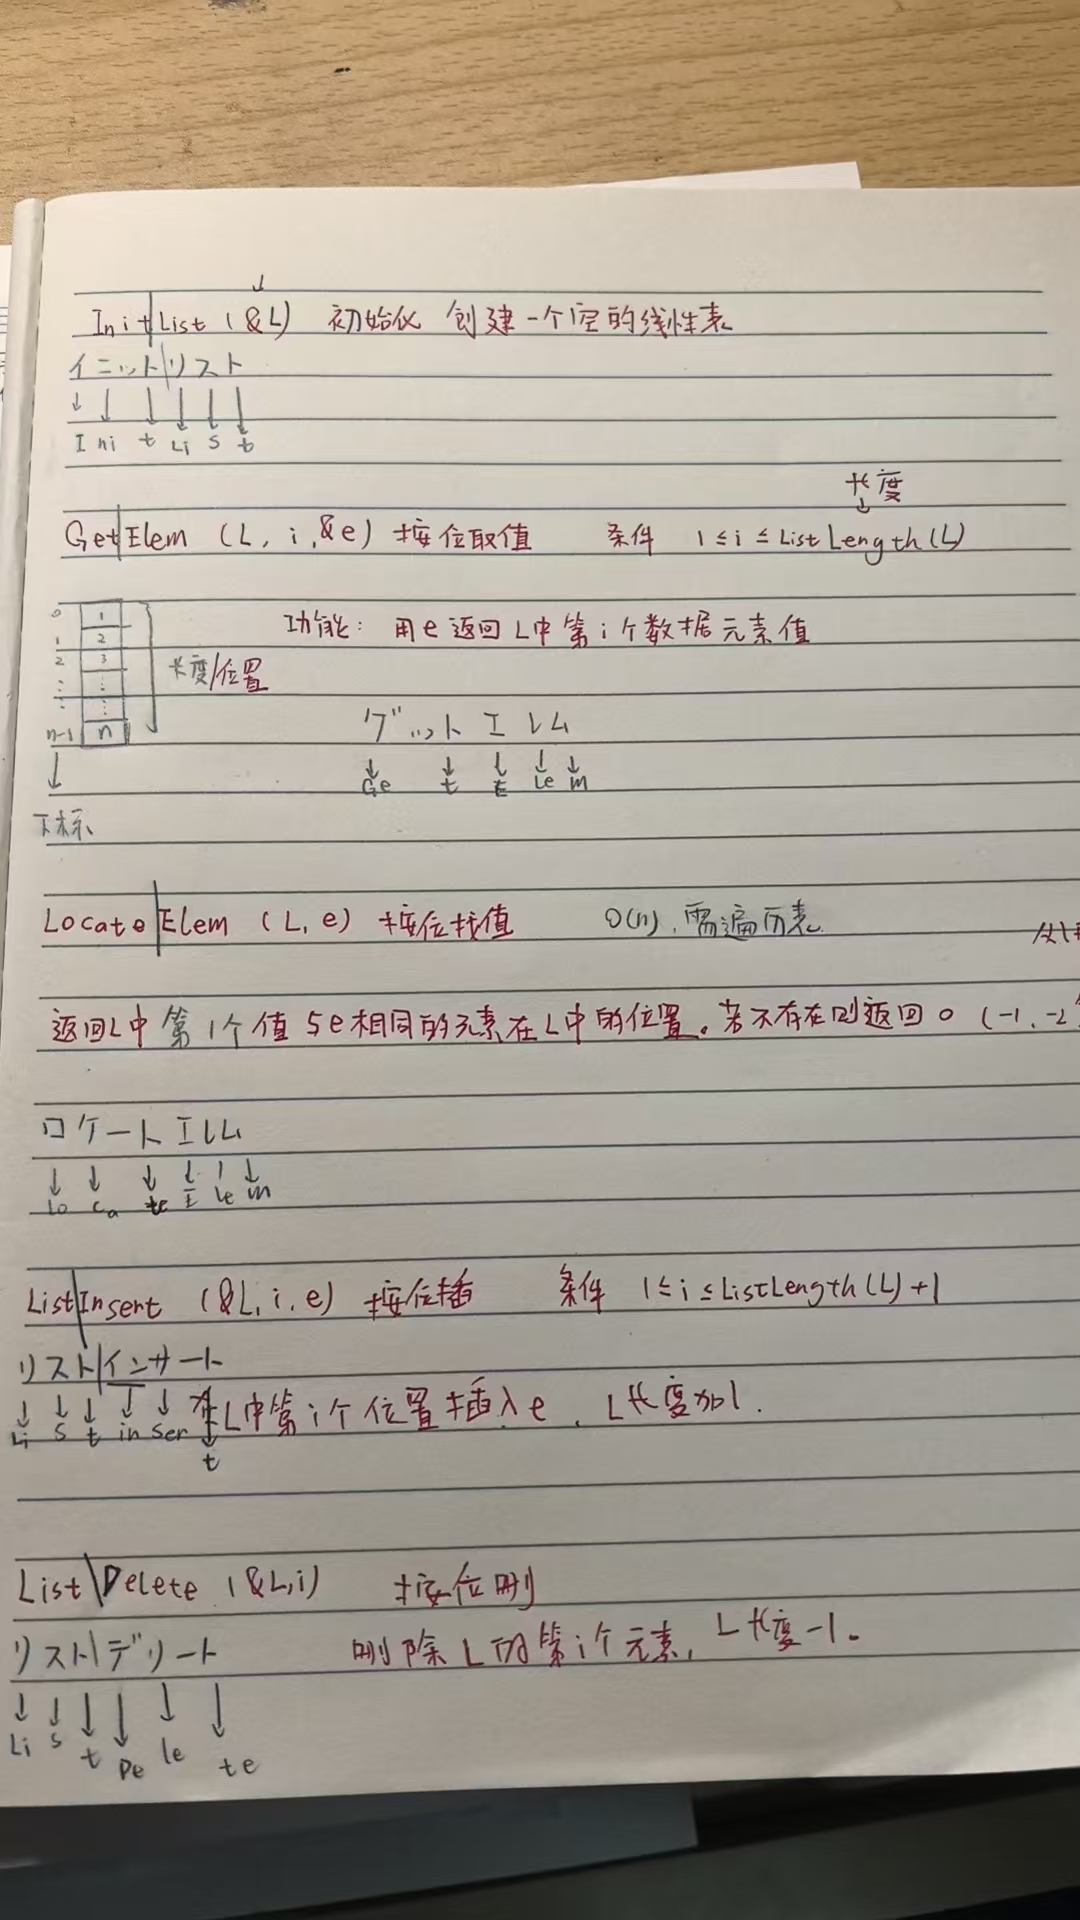 InitList (&L) 初始化 创建一个空的线性表
イニット|リスト
I ni t Li S t
长度
GetElem (L, i, &e) 按位取值 条件 1≤i≤ListLength(L)
功能: 用e返回L中第i个数据元素值
0 1
1 2
2 3
⋮ ⋮
n-1 n
长度/位置
ゲット エレム
Ge t E Le m
下标
Locate|Elem (L, e) 按位找值 O(n), 需遍历表
返回L中第1个值与e相同的元素在L中的位置。若不存在则返回0 (-1、-2
ロケート エレム
Lo ca te E Le m
List|Insert (&L, i, e) 按位插 条件 1≤i≤ListLength(L)+1
リスト|インサート
Li S t in Ser t
在L中第i个位置插入e、L长度加1.
List|Delete (&L,i) 按位删
リスト|デリート
删除L的第i个元素, L长度-1。
Li S t De le te